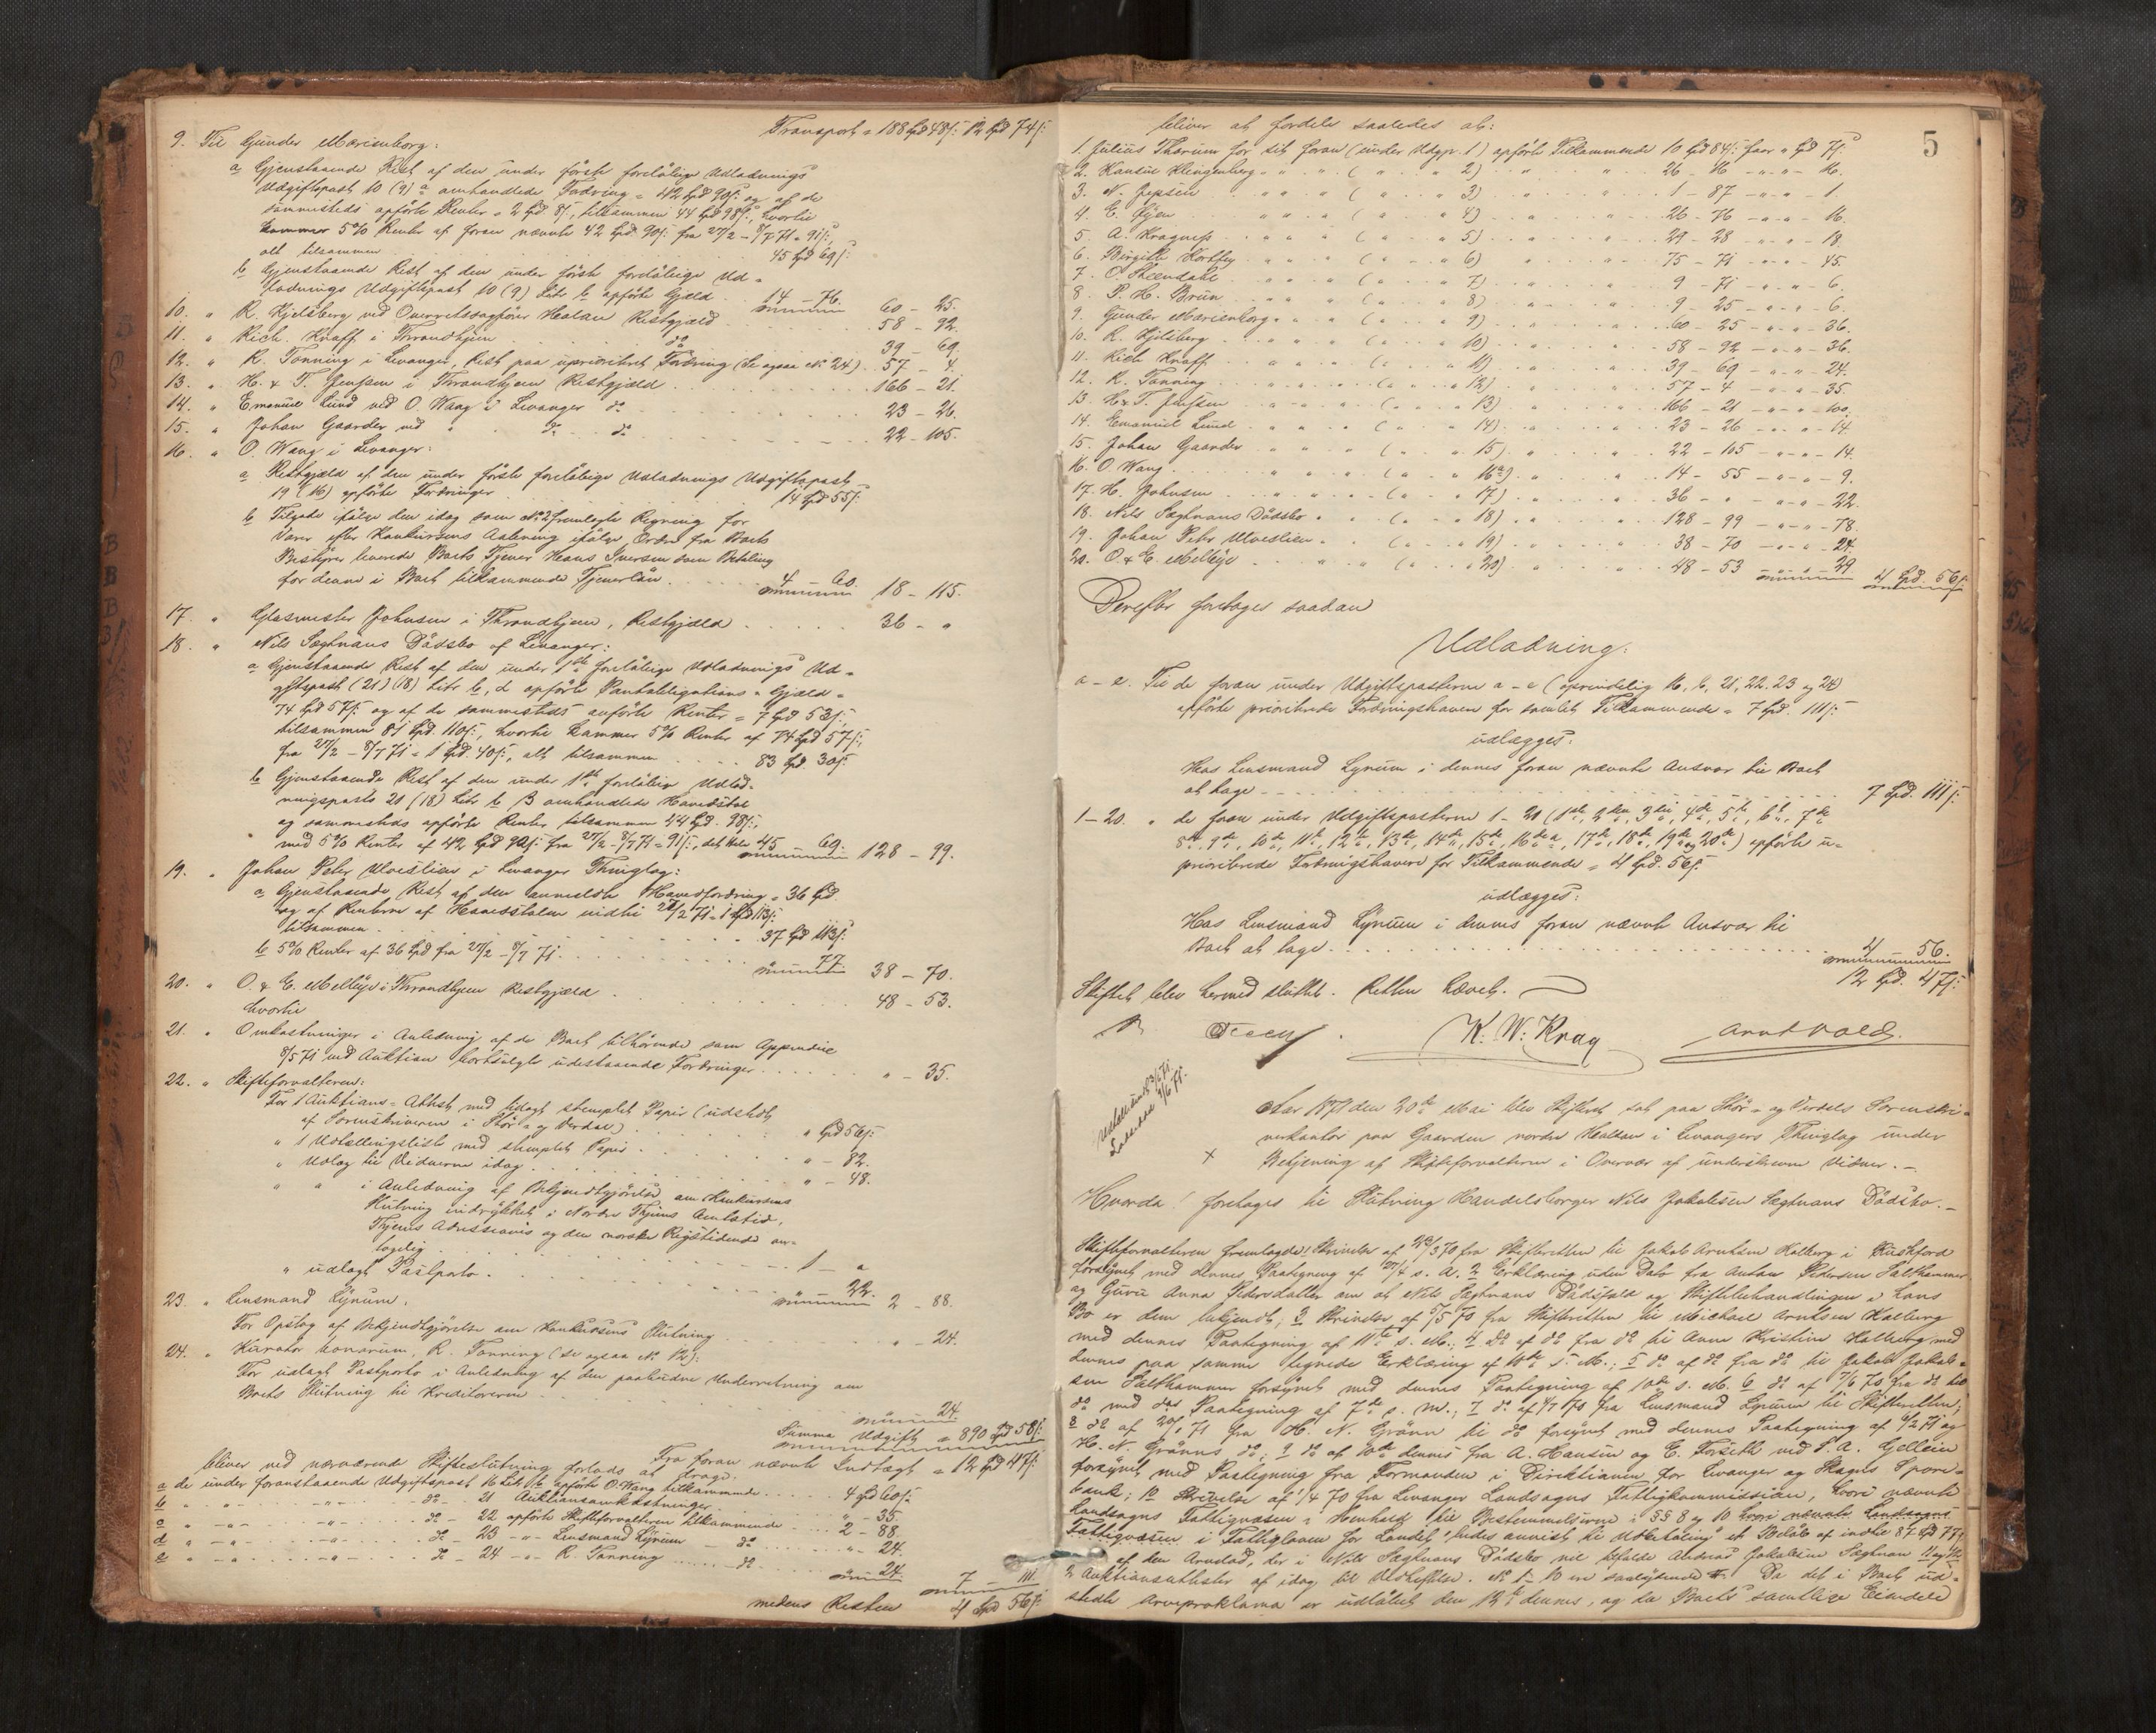 Transport = 188 Spd 48 s: 12 Spd 74 s:
9. Til Gunder Marienborg:
a Gjenstaaende Rest af den under förste forelöbige Udlodnings
Udgiftspost 10 (9) a omhandlede Fordring = 42 Spd 90 s: og af de
sammesteds opförte Renter = 2 Spd. 8 s:, tilsammen 44 Spd 98 s:, hvortil
kommer 5% Renter af foran nævnte 42 Spd. 90 s: fra 27/2 - 8/7 71 = 91 s:,
alt tilsammen . . . 45 Spd 69 s:
b Gjenstaaende Rest af den under förste forelöbige Ud-
lodnings Udgiftspost 10 (9) Litr b opförte Gjæld . . 14 - 76. 60 - 25.
10. " R. Kjelsberg ved Overretssagförer Restgjæld . . . 58 - 92.
11. " Rich. Knaff i Throndhjem . . do . . . 39 - 69.
12. " R. Tönning i Levanger, Rest paa uprioritert Fordring (Se ogsaa No 24) . . 57 - 4.
13. " H. & T. Jenssen i Throndhjem Restgjæld . . . 166 - 21.
14. " Emanuel Lund ved O. Wang i Levanger do . . . 23 - 26.
15. " Johan Gaarder ved " do . . do . . . 22 - 105.
16. " O. Wang i Levanger:
a Restgjæld af den under förste forelöbige Udlodnings Udgiftspost
19 (16) opförte Fordringer . . . 14 Spd 55 s:
b Tilgode ifölge den idag som No 2 fremlagte Regning for
Varer efter Konkursens Aabning ifölge Ordre fra Boets
Bestyrer leverede Boets Tjener Hans Iversen som Betaling
for denne i Boet tilkommende Tjenerlön . . . 4 - 60. 18 - 115.
17. " Glasmester Johnsen i Throndhjem, Restgjæld . . . 36 - "
18. " Nils Sæghnaus Dödsbo af Levanger:
a Gjenstaaende Rest af den under 1ste forelöbige Udlodnings Ud-
giftspost (21) (18) Litr b, d opförte Pantobligations = Gjæld =
74 Spd 57 s: og af de sammesteds anförte Renter = 7 Spd 53 s:,
tilsammen 81 Spd. 110 s:, hvortil kommer 5% Renter af 74 Spd 57 s:,
fra 27/2 - 8/7 71 = 1 Spd. 40 s:, alt tilsammen . . . 83 Spd. 30 s:
b Gjenstaaende Rest af den under 1ste forelöbige Udlod-
ningsposts 21 (18) Litr b β omhandlede Hovedstol
og sammesteds opförte Renter, tilsammen 44 Spd. 98 s:,
med 5% Renter af 42 Spd 90 s: fra 27/2 - 8/7 71 = 91 s:, det hele 45 - 69. 128 - 99.
19. " Johan Peter Ulveslien i Levanger Thinglag:
a Gjenstaaende Rest af den anmeldte Hovedfordring = 36 Spd
og af Renterne af Hovedstolen indtil 27/2 71 = 1 Spd 113 s:
tilsammen . . . 37 Spd 113 s:
b 5% Renter af 36 Spd fra 27/2 - 8/7 71 . . . 77. 38 - 70.
20. " O. & E. Mellbye i Throndhjem Restgjæld . . . 48 - 53.
hvortil
21. " Omkostninger i Anledning af de Boet tilhörende som Appendix
8/5 71 ved Auktion bortsolgte udestaaende Fordringer . . . " - 35.
22. " Skifteforvalteren:
For 1 Auktions = Attest med udlagt stemplet Papir (udstedt
af Sorenskriveren i Stör- og Værdal) . . . " Spd 56 s:
" 1 Udtællingsliste med stemplet Papir . . . " - 82.
" Udlæg til Vidnerne idag . . . " - 48.
" " i Anledning af Bekjendtgjörelse om Konkursens
Slutning indrykket i Nordre Thjems Amtstid.,
Thjems Adresseavis og den norske Rigstidende an-
tagelig . . . 1 - "
" udlagt Postporto . . . 22. 2 - 88.
23. " Lensmand Lynum,
For Opslag af Bekjendtgjörelse om Konkursens Slutning . . . " - 24.
24. " Kurator bonorum, R. Tönning (se ogsaa No 12):
For udlagt Postporto i Anledning af den paabudne Underretning om
Boets Slutning til Kreditorerne . . . 24.
Summa Udgift = 890 Spd 58 s:
Fra foran nævnte Indtægt = 12 Spd 47 s:
bliver ved nærværende Skifteslutning forlods at drage:
a de under foranstaaende Udgiftspost 16 Litr b opförte O. Wang tilkommende . . . 4 Spd 60 s:
b " - " - do - 21 Auktionsomkostninger . . . " - 35.
c " - " - do - 22 opförte Skifteforvalteren tilkommende . . . 2 - 88.
d " - " - do - 23 - " - Lensmand Lynum - do . . . " - 24.
e " - " - do - 24 - " - R. Tönning . . . do . . . 24. 7 - 111.
medens Resten 4 Spd 56 s:
5
bliver at fordele saaledes at:
1. Julius Thorum for sit foran (under Udgp. 1) opförte Tilkommende 10 Spd 84 s: faar " Spd 7 s:
2. Hansine Klingenberg " " ( " 2) " 26 - 16 - " - 16.
3. N. Jepsen " " ( " 3) " 1 - 87 - " - 1
4. E. Gjen " " ( " 4) " 26 - 76 - " - 16.
5. A. Kragness " " ( " 5) " 29 - 28 - " - 18.
6. Birgitte " " ( " 6) " 75 - 71 - " - 45.
7. O. Steendahl " " ( " 7) " 9 - 71 - " - 6.
8. P. H. Brun " " ( " 8) " 9 - 25 - " - 6.
9. Gunder Marienborg " " ( " 9) " 60 - 25 - " - 36.
10. R. Kjelsberg " " ( " 10) " 58 - 92 - " - 36.
11. Rich Knaff " " ( " 11) " 39 - 69 - " - 24.
12. R. Tönning " " ( " 12) " 57 - 4 - " - 35.
13. H & T. Jenssen " " ( " 13) " 166 - 21 - " - 100.
14. Emanuel Lund " " ( " 14) " 23 - 26 - " - 14.
15. Johan Gaarder " " ( " 15) " 22 - 105 - " - 14.
16. O. Wang " " ( " 16a) " 14 - 55 - " - 9.
17. H. Johnsen " " ( " 17) " 36 - " - " - 22.
18. Nils Sæghnaus Dödsbo " ( " 18) " 128 - 99 - " - 78.
19. Johan Peter Ulveslien " ( " 19) " 38 - 70 - " - 24.
20. O & E. Mellbye " " ( " 20) " 48 - 53 - " - 29 4 Spd. 56 s:
Derefter foretoges saadan
Udlodning:
a - e. Til de foran under Udgiftsposterne a - e (oprindelig 16, b, 21, 22, 23 og 24)
opförte prioriterede Fordringshavere for samlet Tilkommende = 7 Spd. 111 s:
udlægges:
Hos Lensmand Lynum i dennes foran nævnte Ansvar til Boet
at tage . . . 7 Spd. 111 s:
1 - 20. " de foran under Udgiftsposterne 1 - 20 (1ste, 2den, 3die, 4de, 5te, 6te, 7de
8de, 9de, 10de, 11te, 12te, 13de, 14de, 15de, 16de a, 17de, 18de, 19de og 20de) opförte u-
prioriterede Fordringshavere for Tilkommende = 4 Spd. 56 s:
udlægges:
Hos Lensmand Lynum i dennes foran nævnte Ansvar til
Boet at tage . . . 4 - 56.
12 Spd. 47 s:
Skiftet blev hermed sluttet. Retten hævet.
K. W: Krag Arnt Vold.
Aar 1871 den 20de Mai blev Skifteret sat paa Stör- og Værdals Sorenskri-
verkontor paa Gaarden nordre Halsan i Levangers Thinglag under
× Betjening af Skifteforvalteren i Overvær af underskrevne Vidner. -
Hvorda! foretoges til Slutning Handelsborger Nils Jakobsen Sæghnaus Dödsbo. -
Skifteforvalteren fremlagde: 1 Skrivelse af 29/3 70 fra Skifteretten til Jakob Arntsen Kolberg i
forsynet med dennes Paategning af 27/4 s. A. 2 Erklæring uden Dato fra Anton Pedersen Salthammer
og Guru Anna Pedersdatter om at Nils Sæghnaus Dödsfald og Skiftebehandlingen i hans
Bo er dem bekjendt; 3 Skrivelse af 5/5 70 fra Skifteretten til Michael Arntsen Kolberg
med dennes Paategning af 11te s. M.; 4 do af do fra do til Anne Kristine Kolberg med
dennes paa samme tegnede Erklæring af 11te s. M.; 5 do af do fra do til Jakob Jakob-
sen Salthammer forsynet med dennes Paategning af 10de s. M. 6 do af 7/6 70 fra do til
do med das Paategning af 7de s. M.; 7 do af 4/7 70 fra Lensmand Lynum til Skifteretten;
8 do af 30/1 71 fra H. N. Grönn til do forsynet med dennes Paategning af 6/2 71 og
H. N. Grönns do; 9 do af 10de dennes fra A. Hansen og E. Forseth ved S. A. Gjellein
forsynet med Paategning fra Formanden i Direktionen for Levanger og Skogns Spare-
bank; 10 Skrivelse af 1/4 70 fra Levanger Landsogns Fattigkommission, hvori nævnte
Landsogns Fattigvæsen i Henhold til Bestemmelserne i §§ 8 og 10
Fattigvæsen i Fattigloven for Landet bedes anvist til Udbetaling et Belöb af indtil 87 Spd 77 s:
af den Arvelod, der i Nils Sæghnaus Dödsbo vil tilfalde Andreas Jakobsen Sæghnau 11 og 12
2 Auktionsattester af idag til Vedheftelse. No 1 - 10 ere saalydende #. Da det i Boet ud-
stedte Arveproklama er udlöbet den 12te dennes, og da Boets samtlige Eiendele